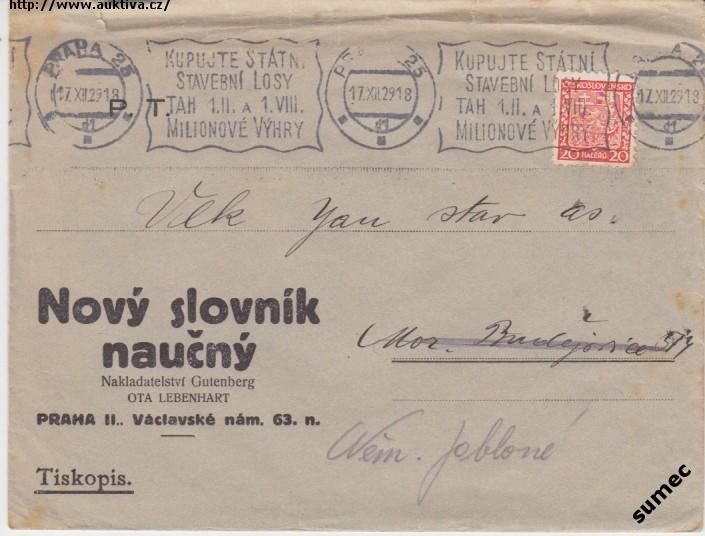 http://www.auktiva.cz/
PRAHA 25
17.XII.29 18
d1
KUPUJTE STÁTNÍ
STAVEBNÍ LOSY
TAH 1.II. A 1.VIII.
MILIONOVÉ VÝHRY
25
17.XII.29 18
d1
KUPUJTE STÁTNÍ
STAVEBNÍ LOSY
TAH 1.II. A 1.VIII.
MILIONOVÉ VÝHRY
17.XII.29 18
d1
ČESKOSLOVENSKO
20 HALÉŘŮ 20
P. T.
Velk Jan stav as.
Nový slovník
naučný
Nakladatelství Gutenberg
OTA LEBENHART
PRAHA II.. Václavské nám. 63. n.
Mor. Budějovice
Něm. Jabloné
Tiskopis.
sumec